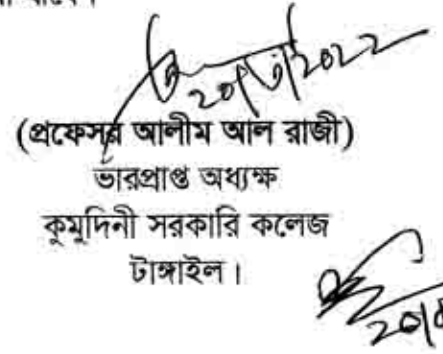 (প্রফেসর আলীম আল রাজী)
ভারপ্রাপ্ত অধ্যক্ষ
কুমুদিনী সরকারি কলেজ
টাঙ্গাইল।